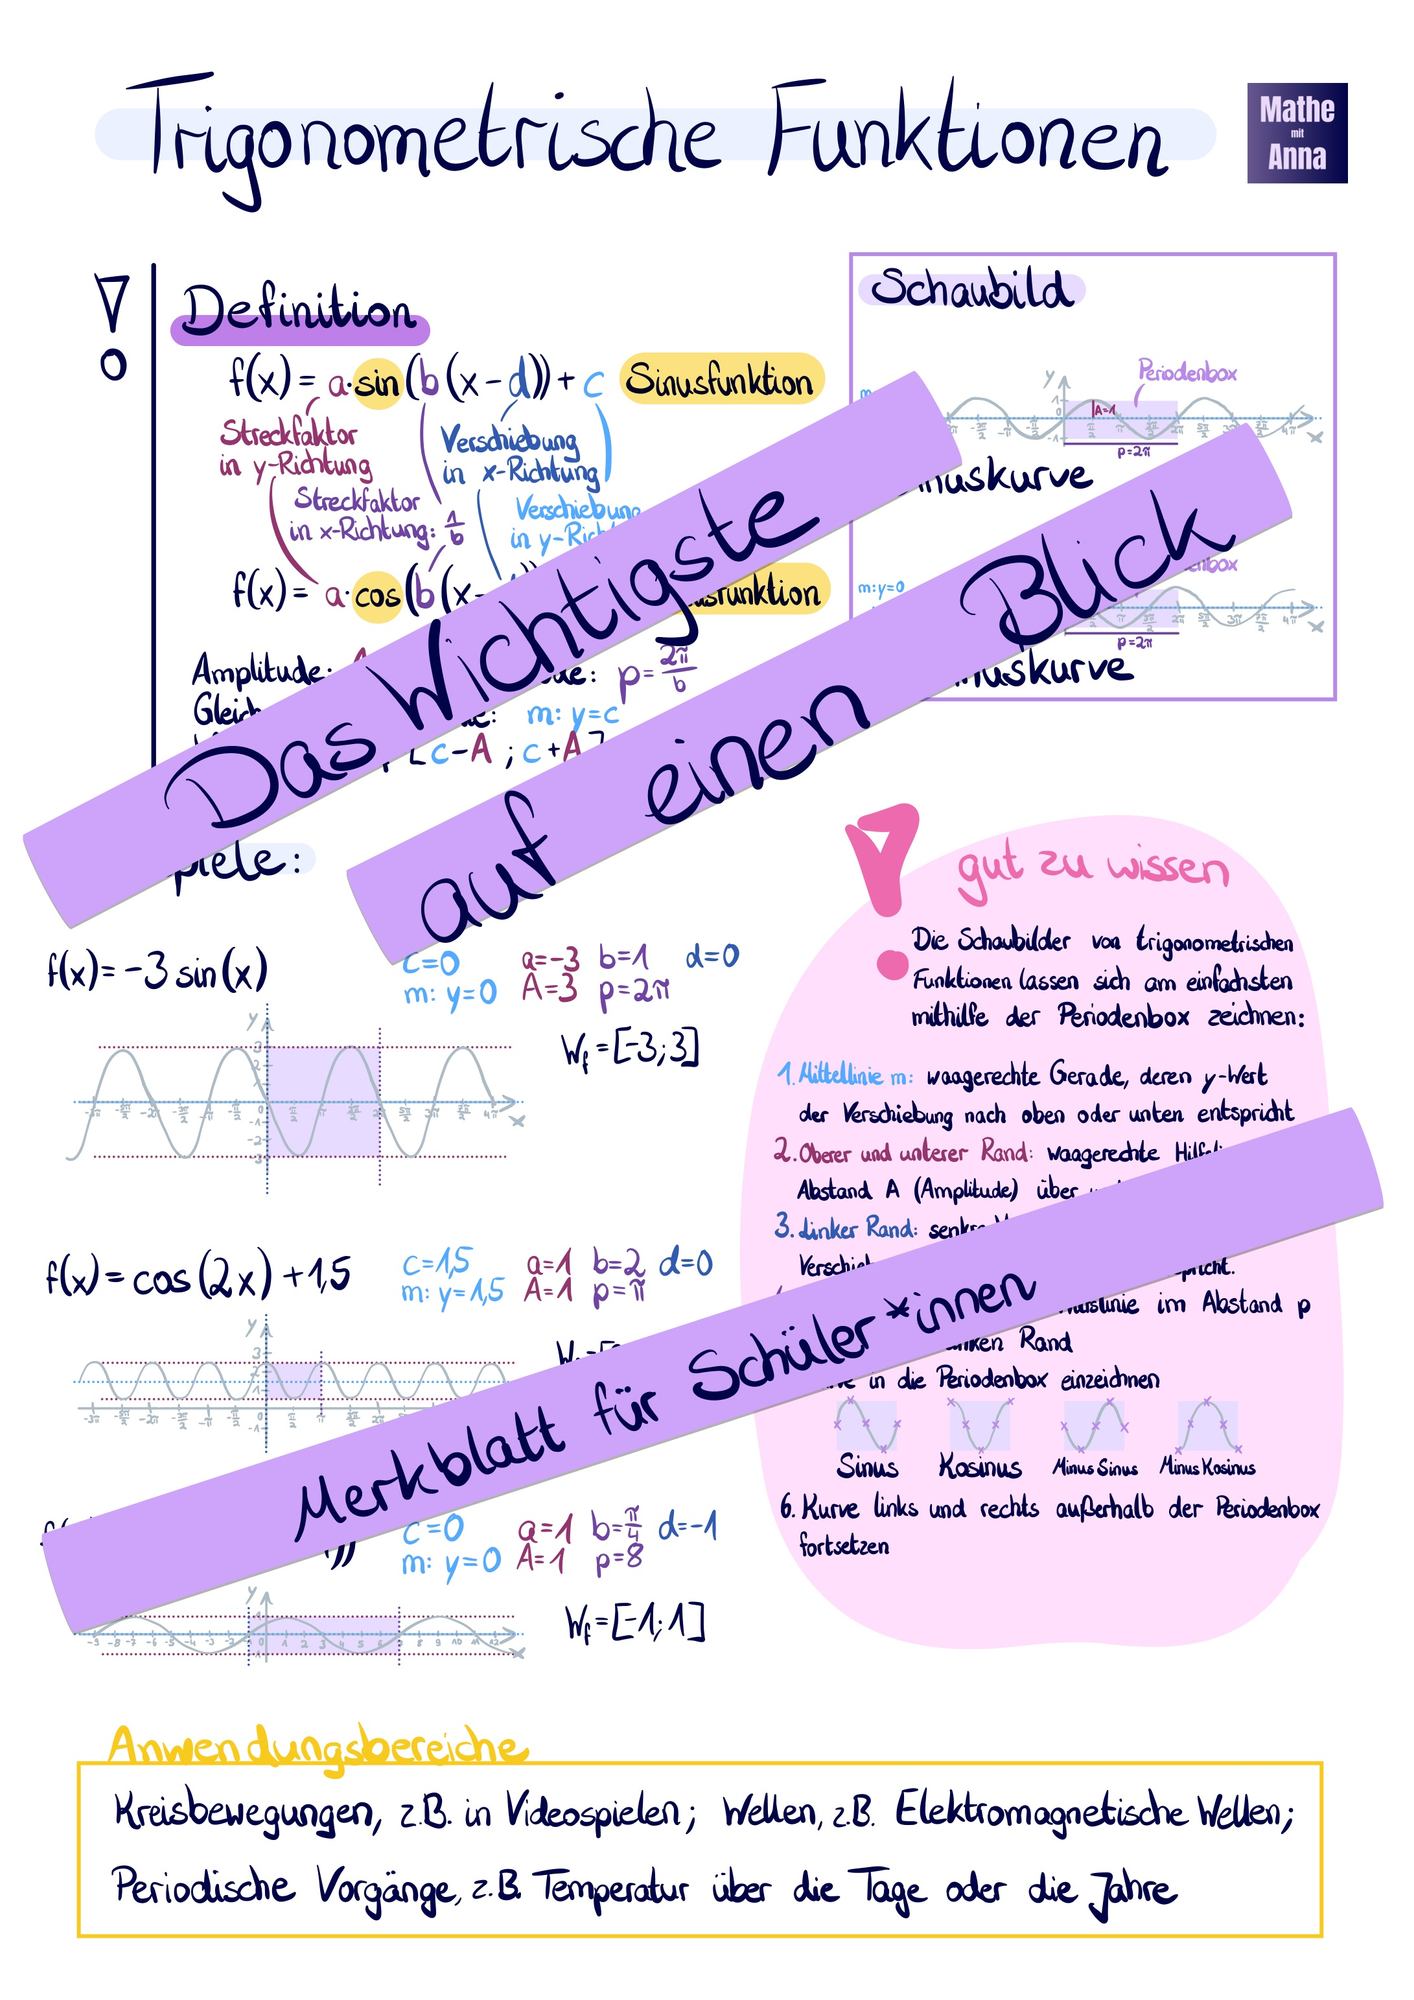 Trigonometrische Funktionen
Mathe
mit
Anna
Definition
f(x) = a·sin(b(x-d))+c Sinusfunktion
Streckfaktor
in y-Richtung
Verschiebung
in x-Richtung
Streckfaktor
in x-Richtung: 1/b
Verschiebung
in y-
f(x) = a·cos(b(x-
Amplitude:
p = 2π/b
m: y=c
[c-A ; c+A]
Schaubild
Periodenbox
A=1
p=2π
m: y=0
p=2π
Das Wichtigste
auf einen Blick
f(x) = -3 sin(x)
c=0 a=-3 b=1 d=0
m: y=0 A=3 p=2π
Wf = [-3;3]
f(x) = cos(2x) +1,5
c=1,5 a=1 b=2 d=0
m: y=1,5 A=1 p=π
c=0 a=1 b=π/4 d=-1
m: y=0 A=1 p=8
Wf = [-1;1]
gut zu wissen
Die Schaubilder von trigonometrischen
Funktionen lassen sich am einfachsten
mithilfe der Periodenbox zeichnen:
1. Mittellinie m: waagerechte Gerade, deren y-Wert
der Verschiebung nach oben oder unten entspricht
2. Oberer und unterer Rand: waagerechte
Abstand A (Amplitude) über
3. Linker Rand:
im Abstand p
Rand
in die Periodenbox einzeichnen
Sinus Kosinus Minus Sinus Minus Kosinus
6. Kurve links und rechts außerhalb der Periodenbox
fortsetzen
Merkblatt für Schüler*innen
Anwendungsbereiche
Kreisbewegungen, z.B. in Videospielen; Wellen, z.B. Elektromagnetische Wellen;
Periodische Vorgänge, z.B. Temperatur über die Tage oder die Jahre